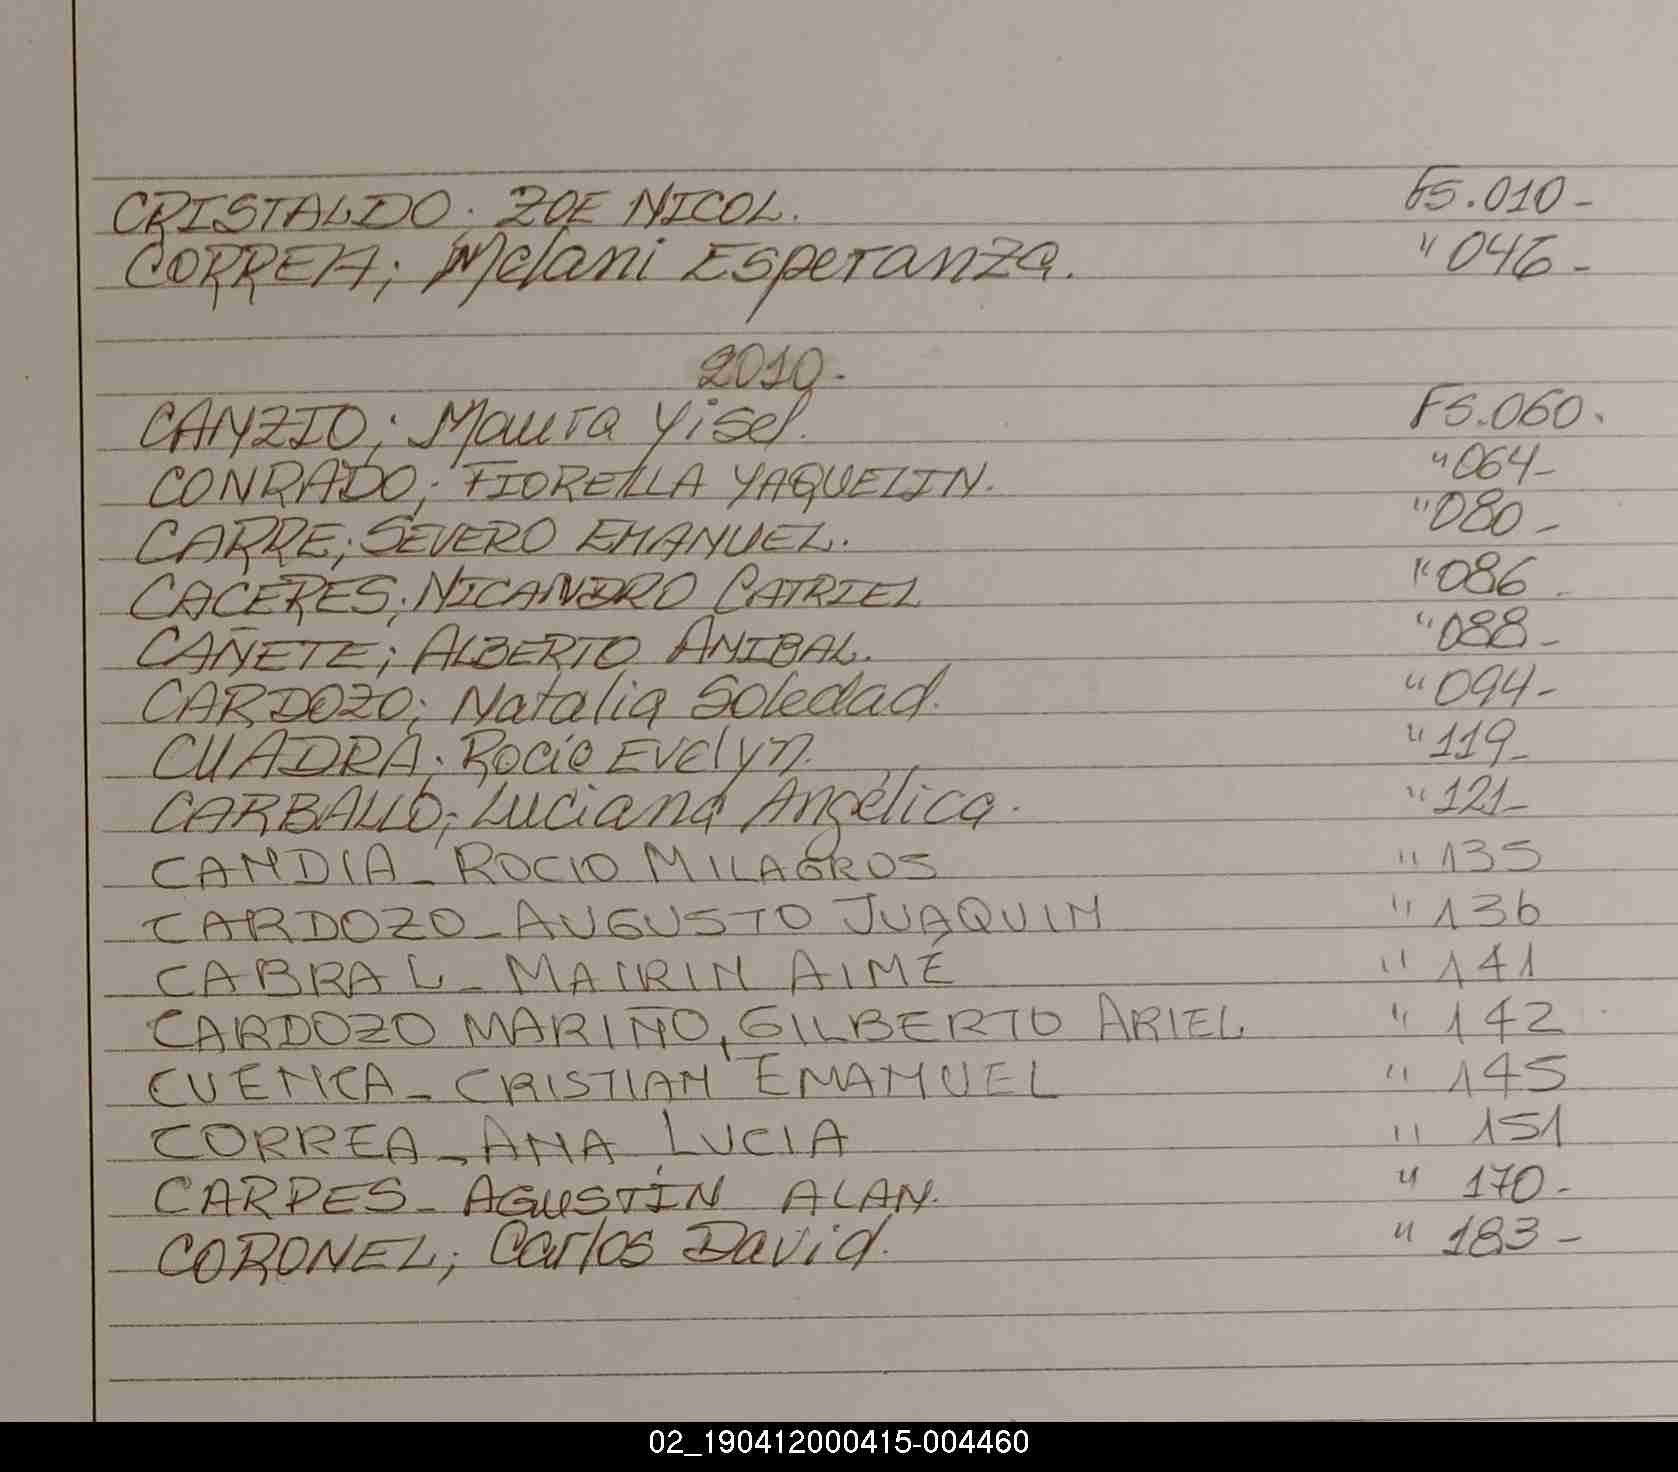 CRISTALDO; ZOE NICOL. FS.010-
CORREA; Melani Esperanza. " 046-
2010.-
CANZIO; Maura Yisel. FS.060.
CONRADO; FIORELLA YAQUELIN. " 064-
CARRE; SEVERO EMANUEL. " 080-
CACERES; NICANDRO CATRIEL " 086-
CAÑETE; ALBERTO ANIBAL. " 088-
CARDOZO; Natalia Soledad. " 094-
CUADRA; Rocio Evelyn. " 119-
CARBALLO; Luciana Angélica. " 121-
CANDIA_ ROCIO MILAGROS " 135
CARDOZO_ AUGUSTO JUAQUIN " 136
CABRAL_ MAIRIN AIMÉ " 141
CARDOZO MARIÑO, GILBERTO ARIEL " 142
CUENCA_ CRISTIAN EMANUEL " 145
CORREA_ ANA LUCIA " 151
CARPES_ AGUSTIN ALAN. " 170-
CORONEL; Carlos David. " 183-
02_190412000415-004460